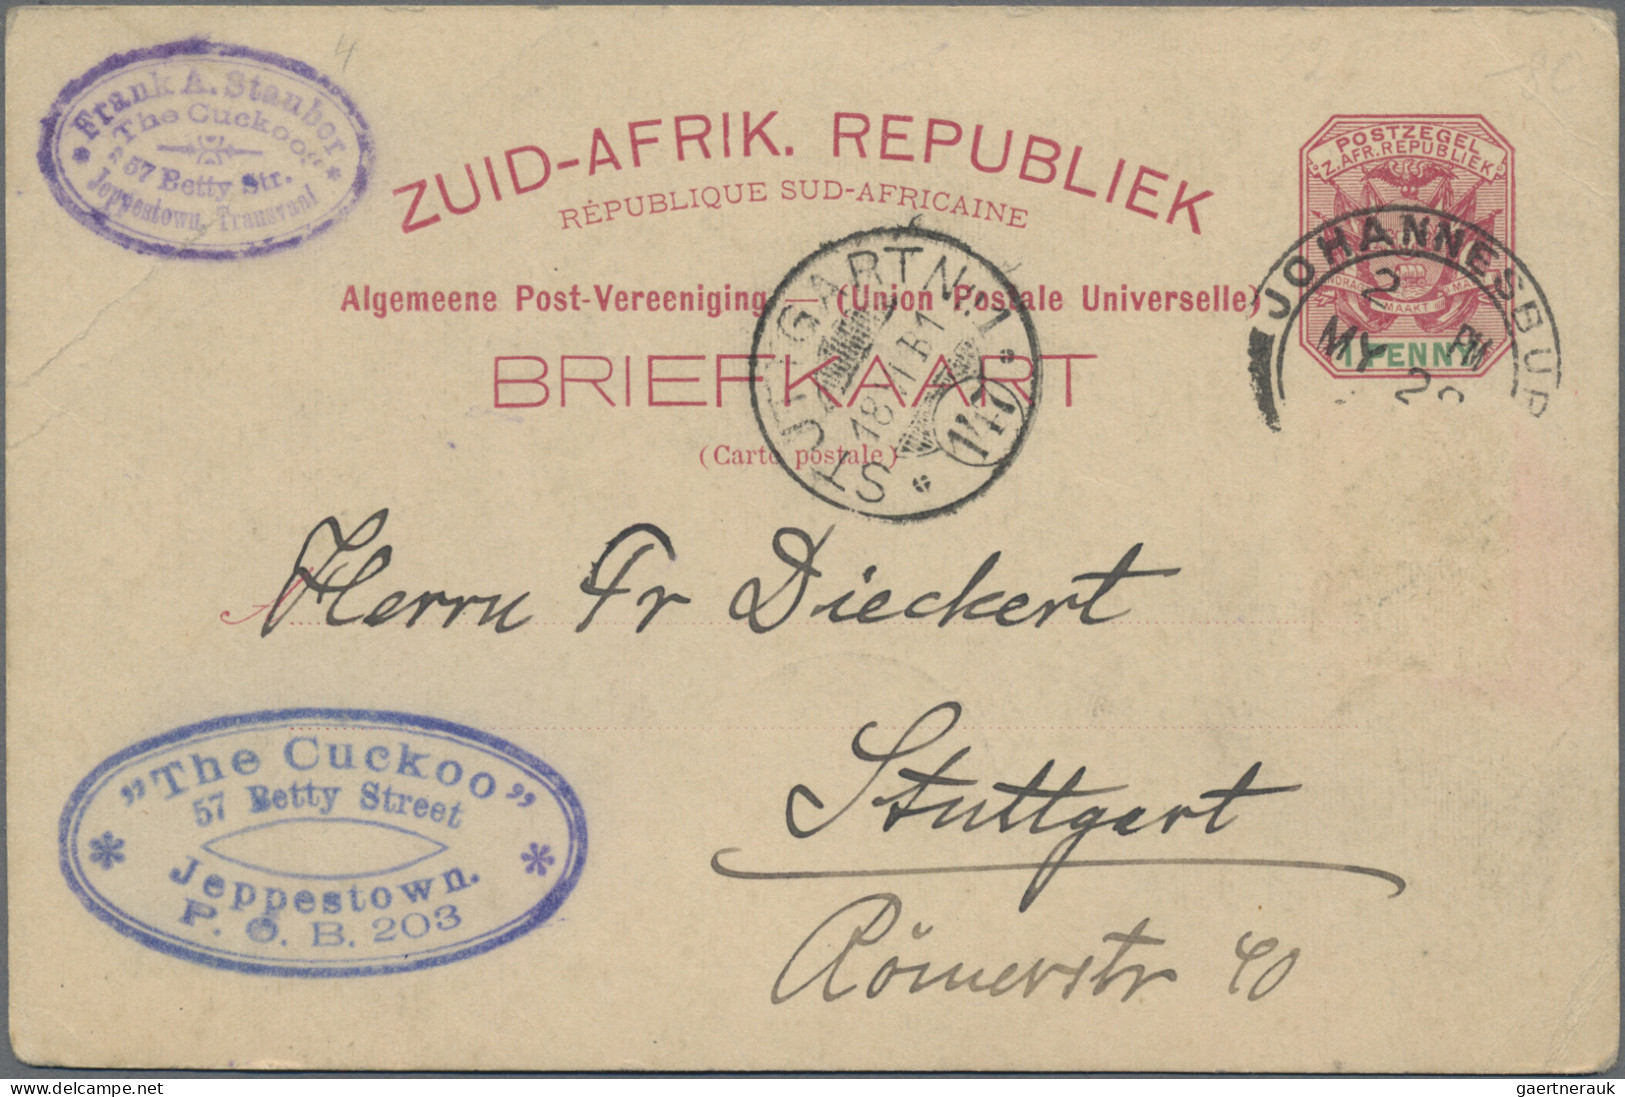 Frank A. Stauber
"The Cuckoo"
57 Betty Str.
Jeppestown, Transvaal
4
ZUID-AFRIK. REPUBLIEK
RÉPUBLIQUE SUD-AFRICAINE
Algemeene Post-Vereeniging — (Union Postale Universelle)
BRIEFKAART
(Carte postale)
POSTZEGEL
Z. AFR. REPUBLIEK
MAAKT
1 PENNY
JOHANNESBUR
2 PM
MY 2
STUTTGART Nr. 1
18 VI B1
140
A
Herrn Fr Dieckert
Stuttgart
Römerstr 40
"The Cuckoo"
57 Betty Street
Jeppestown.
P. O. B. 203
gaertnerauk